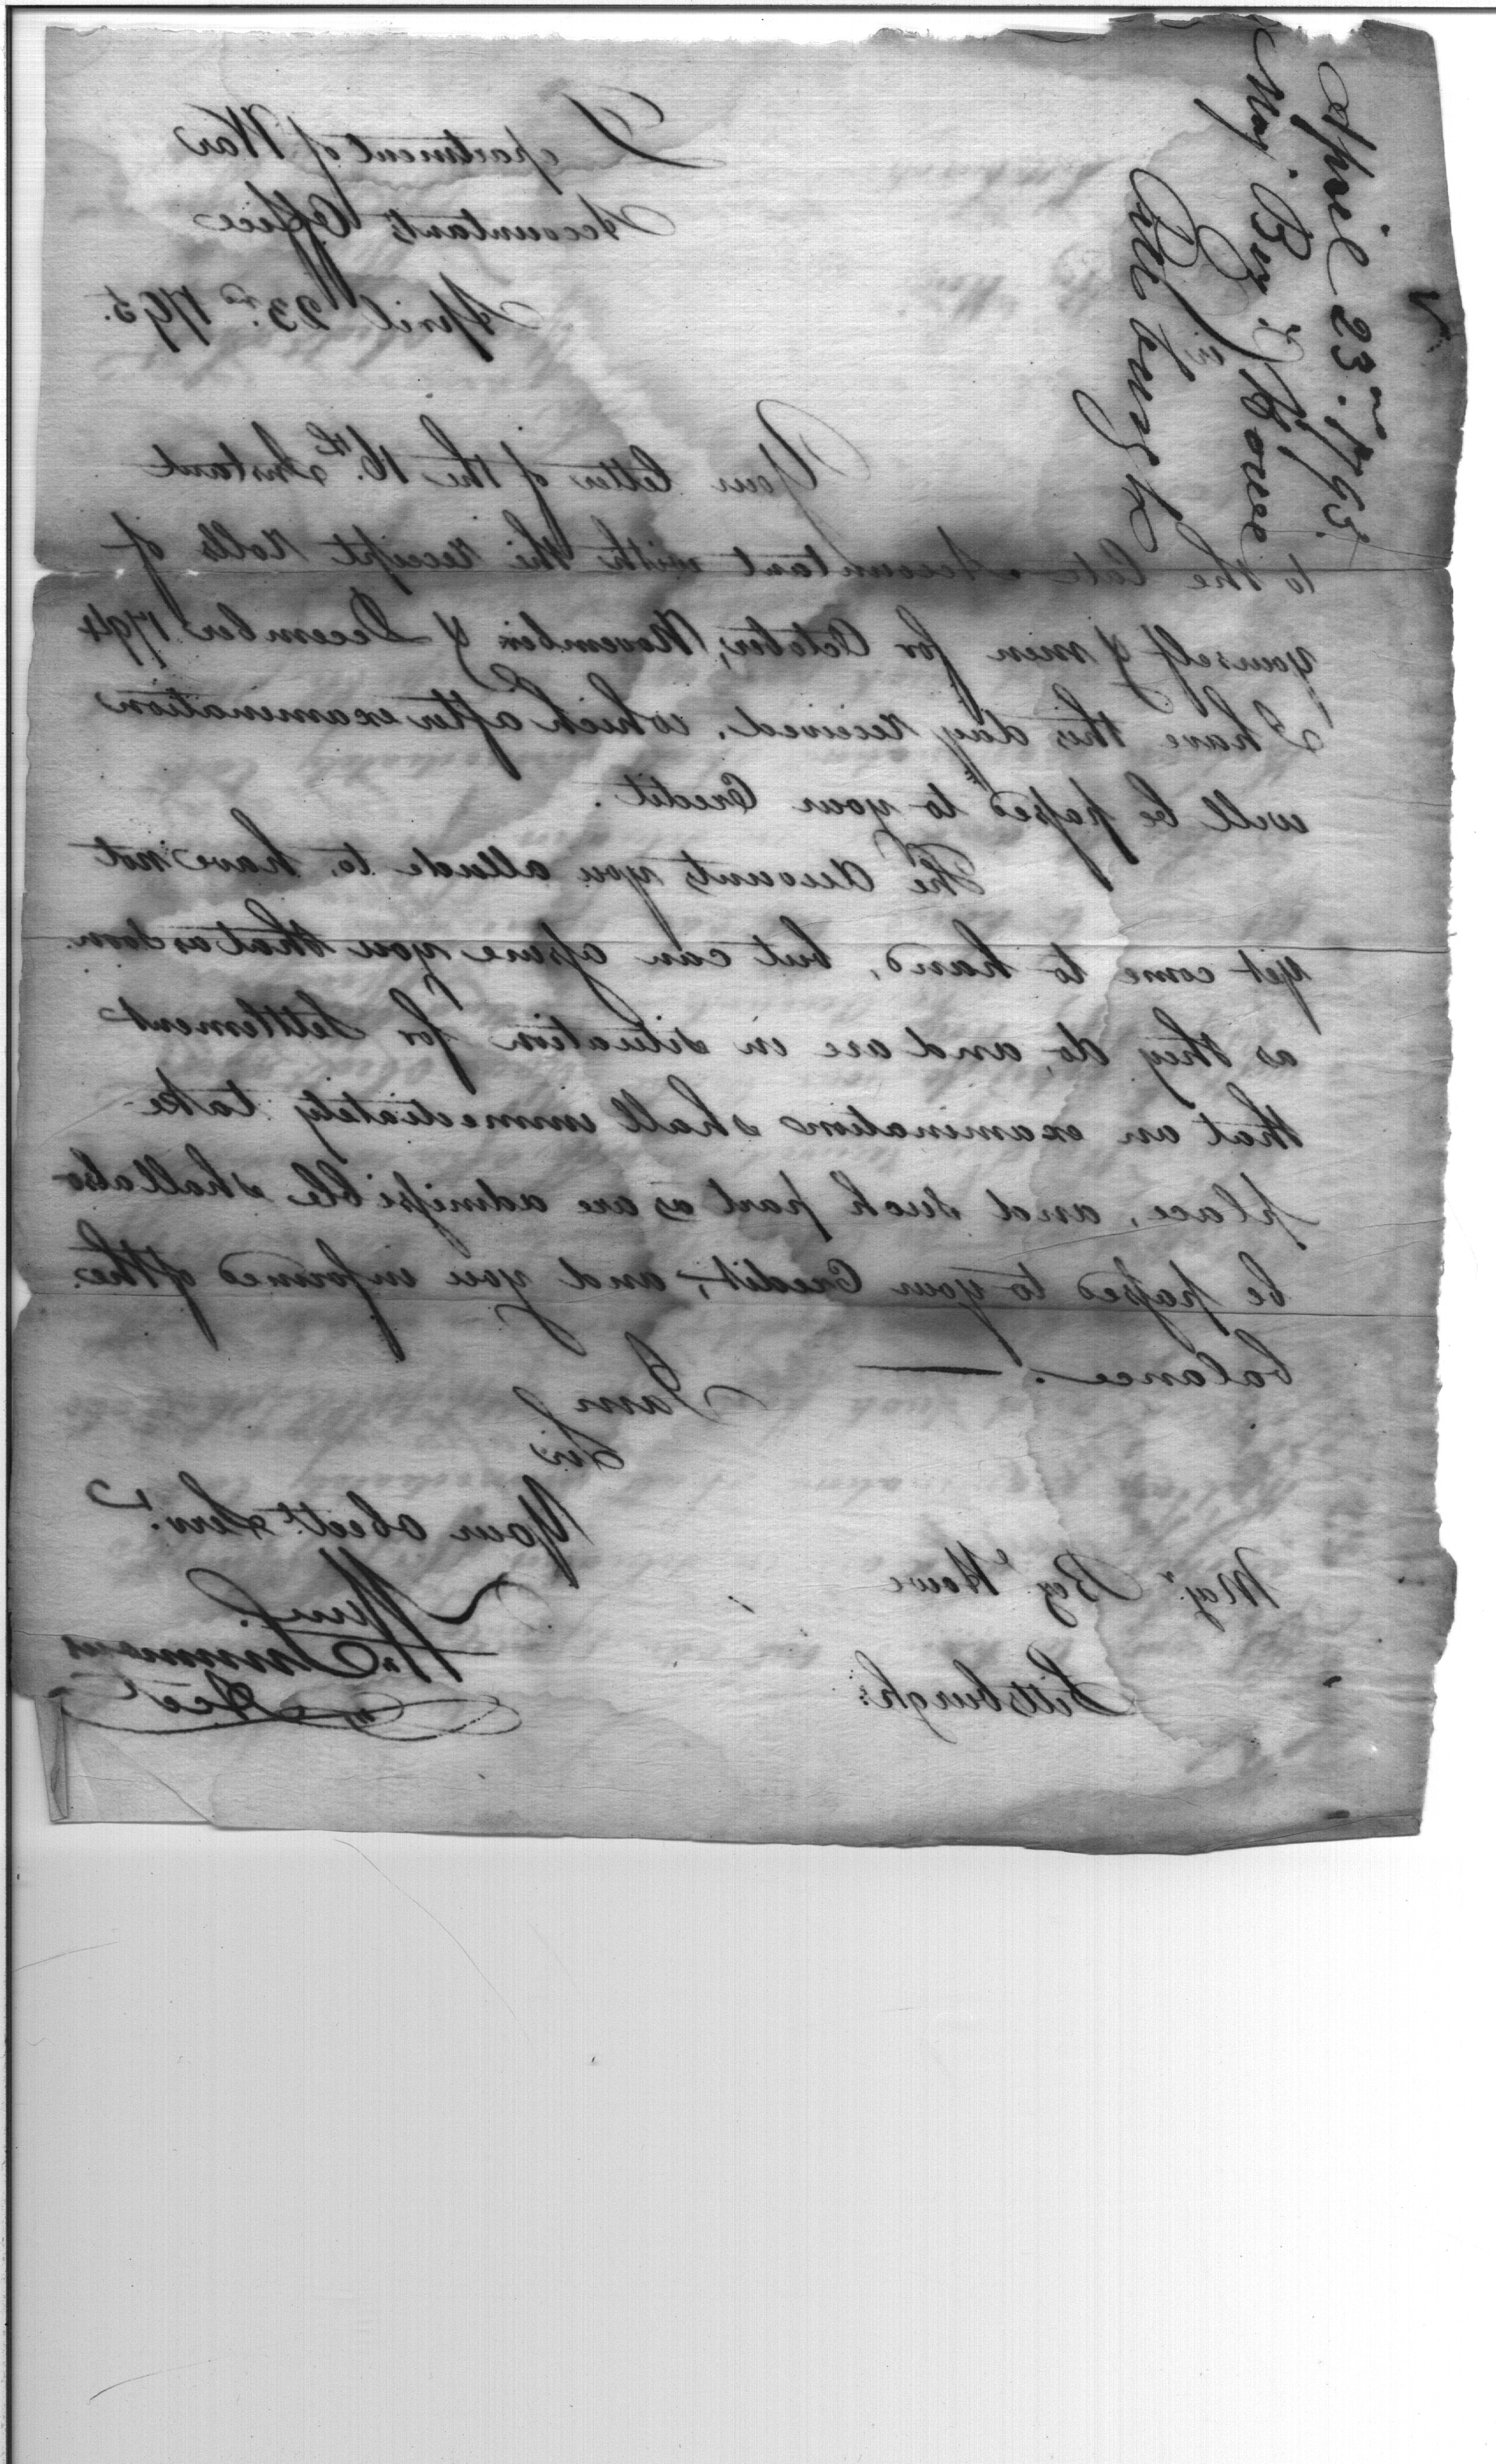 Department of War
Accountants Office
April 23.rd 1795.
Your letter of the 16.th Instant
to the late Accountant with the receipt rolls of
yourself & men for October, November & December 1794
I have this day received, which after examination
will be passed to your Credit.
The Accounts you allude to, have not
yet come to hand, but can assure you that as soon
as they do, and are in situation for settlement
that an examination shall immediately take
place, and such part as are admissible shall also
be passed to your Credit, and you informed of the
balance.
I am
Sir
Your obedt. Servt.
Wm. Simmons
Acct
Majr. Bez. Howe
Pittsburgh
April 23rd. 1795.
Maj. Bez. Howe
Pittsburgh